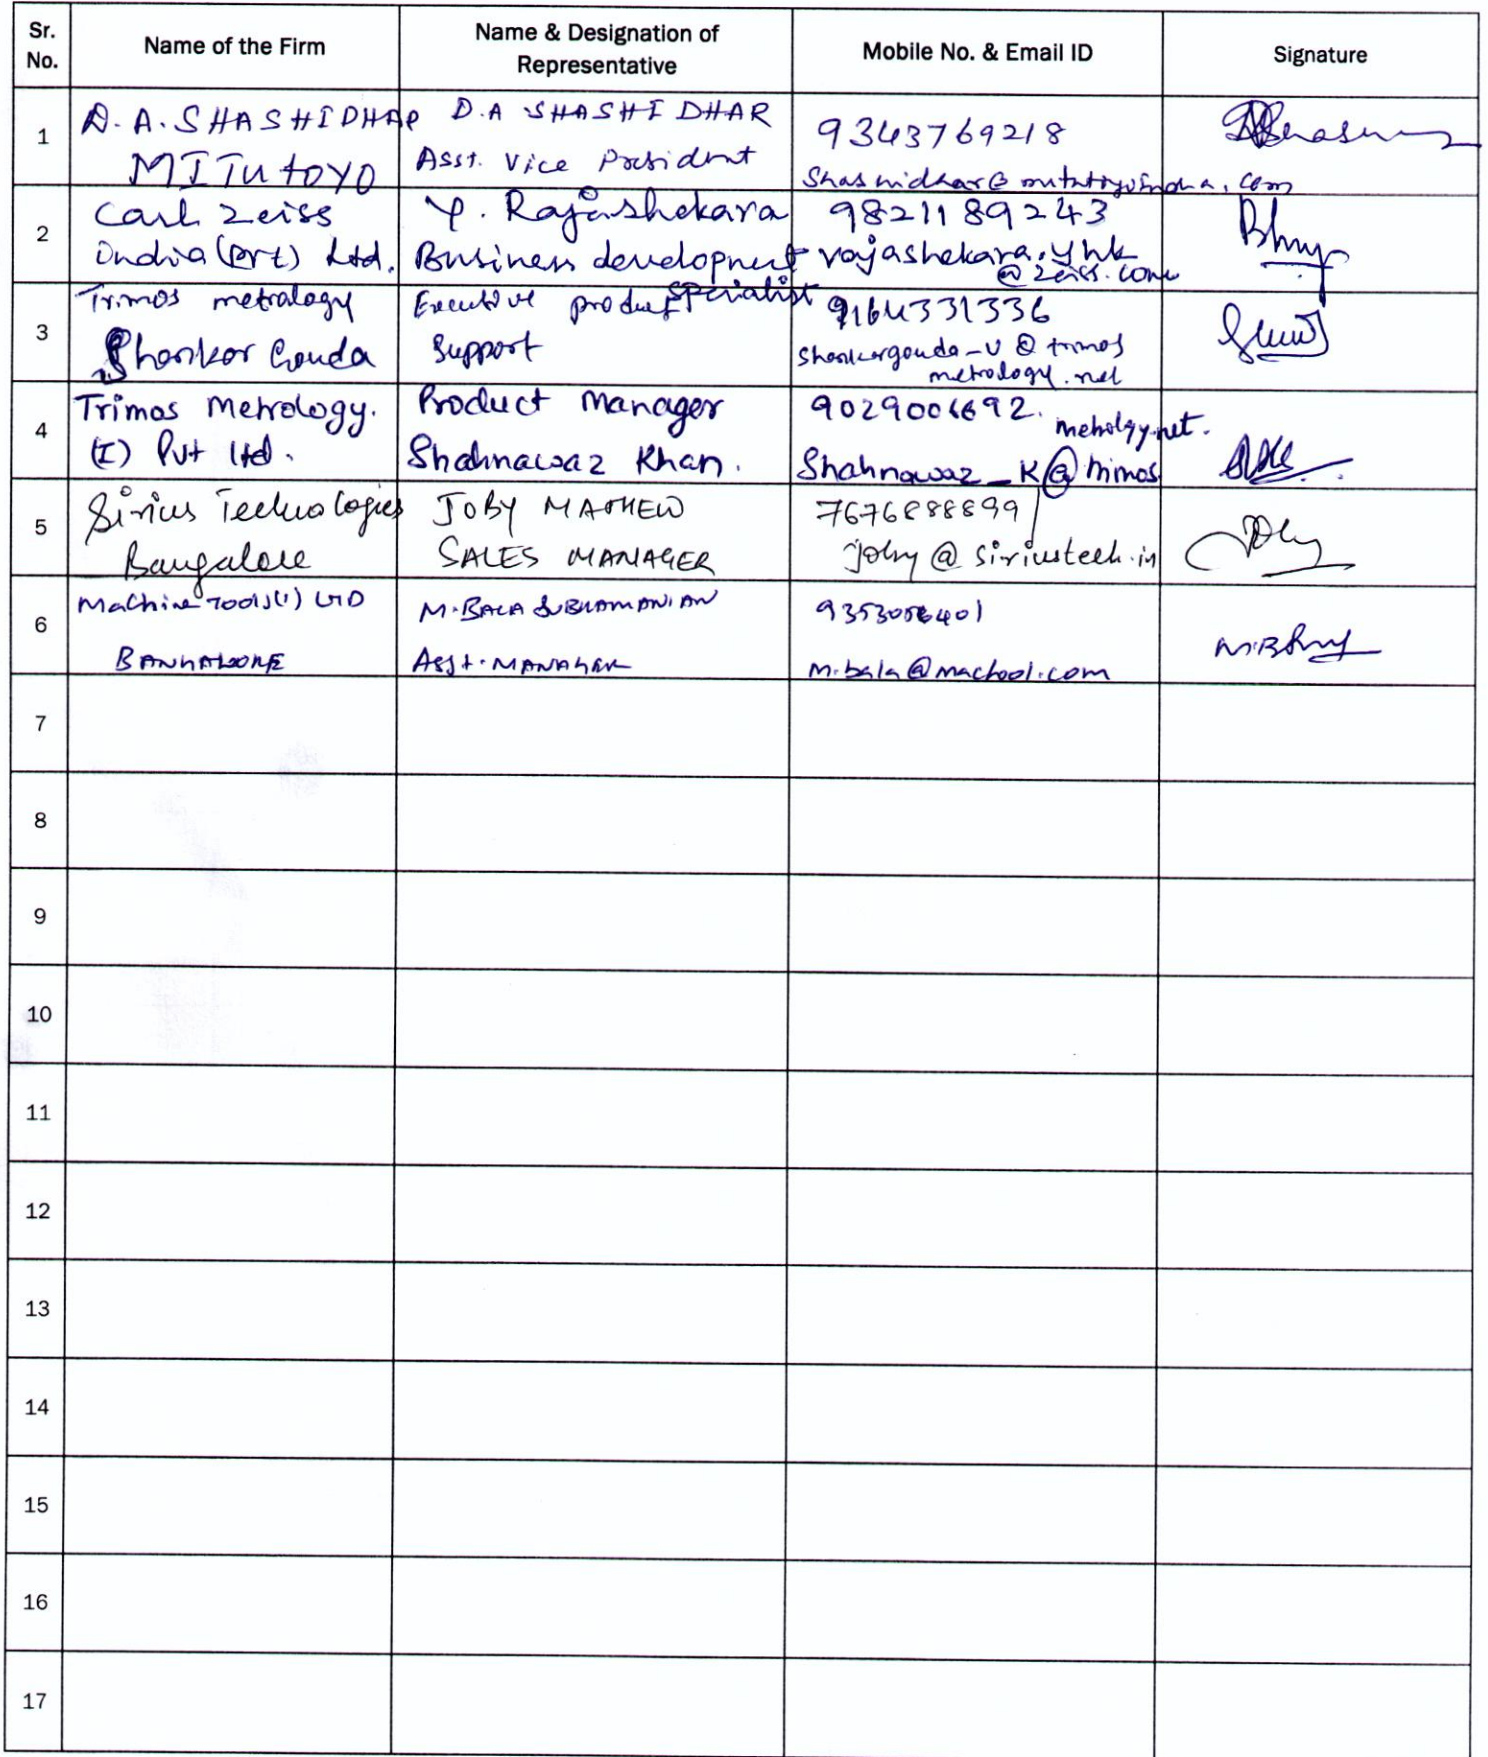 Sr. No.
Name of the Firm
Name & Designation of Representative
Mobile No. & Email ID
Signature
1
D.A. SHASHIDHAR
MITUTOYO
D.A SHASHIDHAR
Asst. Vice President
9343769218
2
Carl Zeiss
India (Pvt) Ltd.
Y. Rajashekara
Business development
specialist
9821189243
rajashekara.yhk
@zeiss.com
3
Trimos metrology
Shankar Gouda
Executive product
Support
9164331336
shankargouda-v @ trimos
metrology.net
4
Trimos Metrology.
(I) Pvt ltd.
Product Manager
Shahnawaz Khan.
9029006692.
metrology.net.
Shahnawaz_K@trimos
5
Sirius Technologies
Bangalore
JOBY MATHEW
SALES MANAGER
7676888899
joby @ siriustech.in
6
Machine Tools(I) LTD
BANGALORE
M. BALA SUBRAMANIAN
ASST. MANAGER
m.bala@mactool.com
7
8
9
10
11
12
13
14
15
16
17